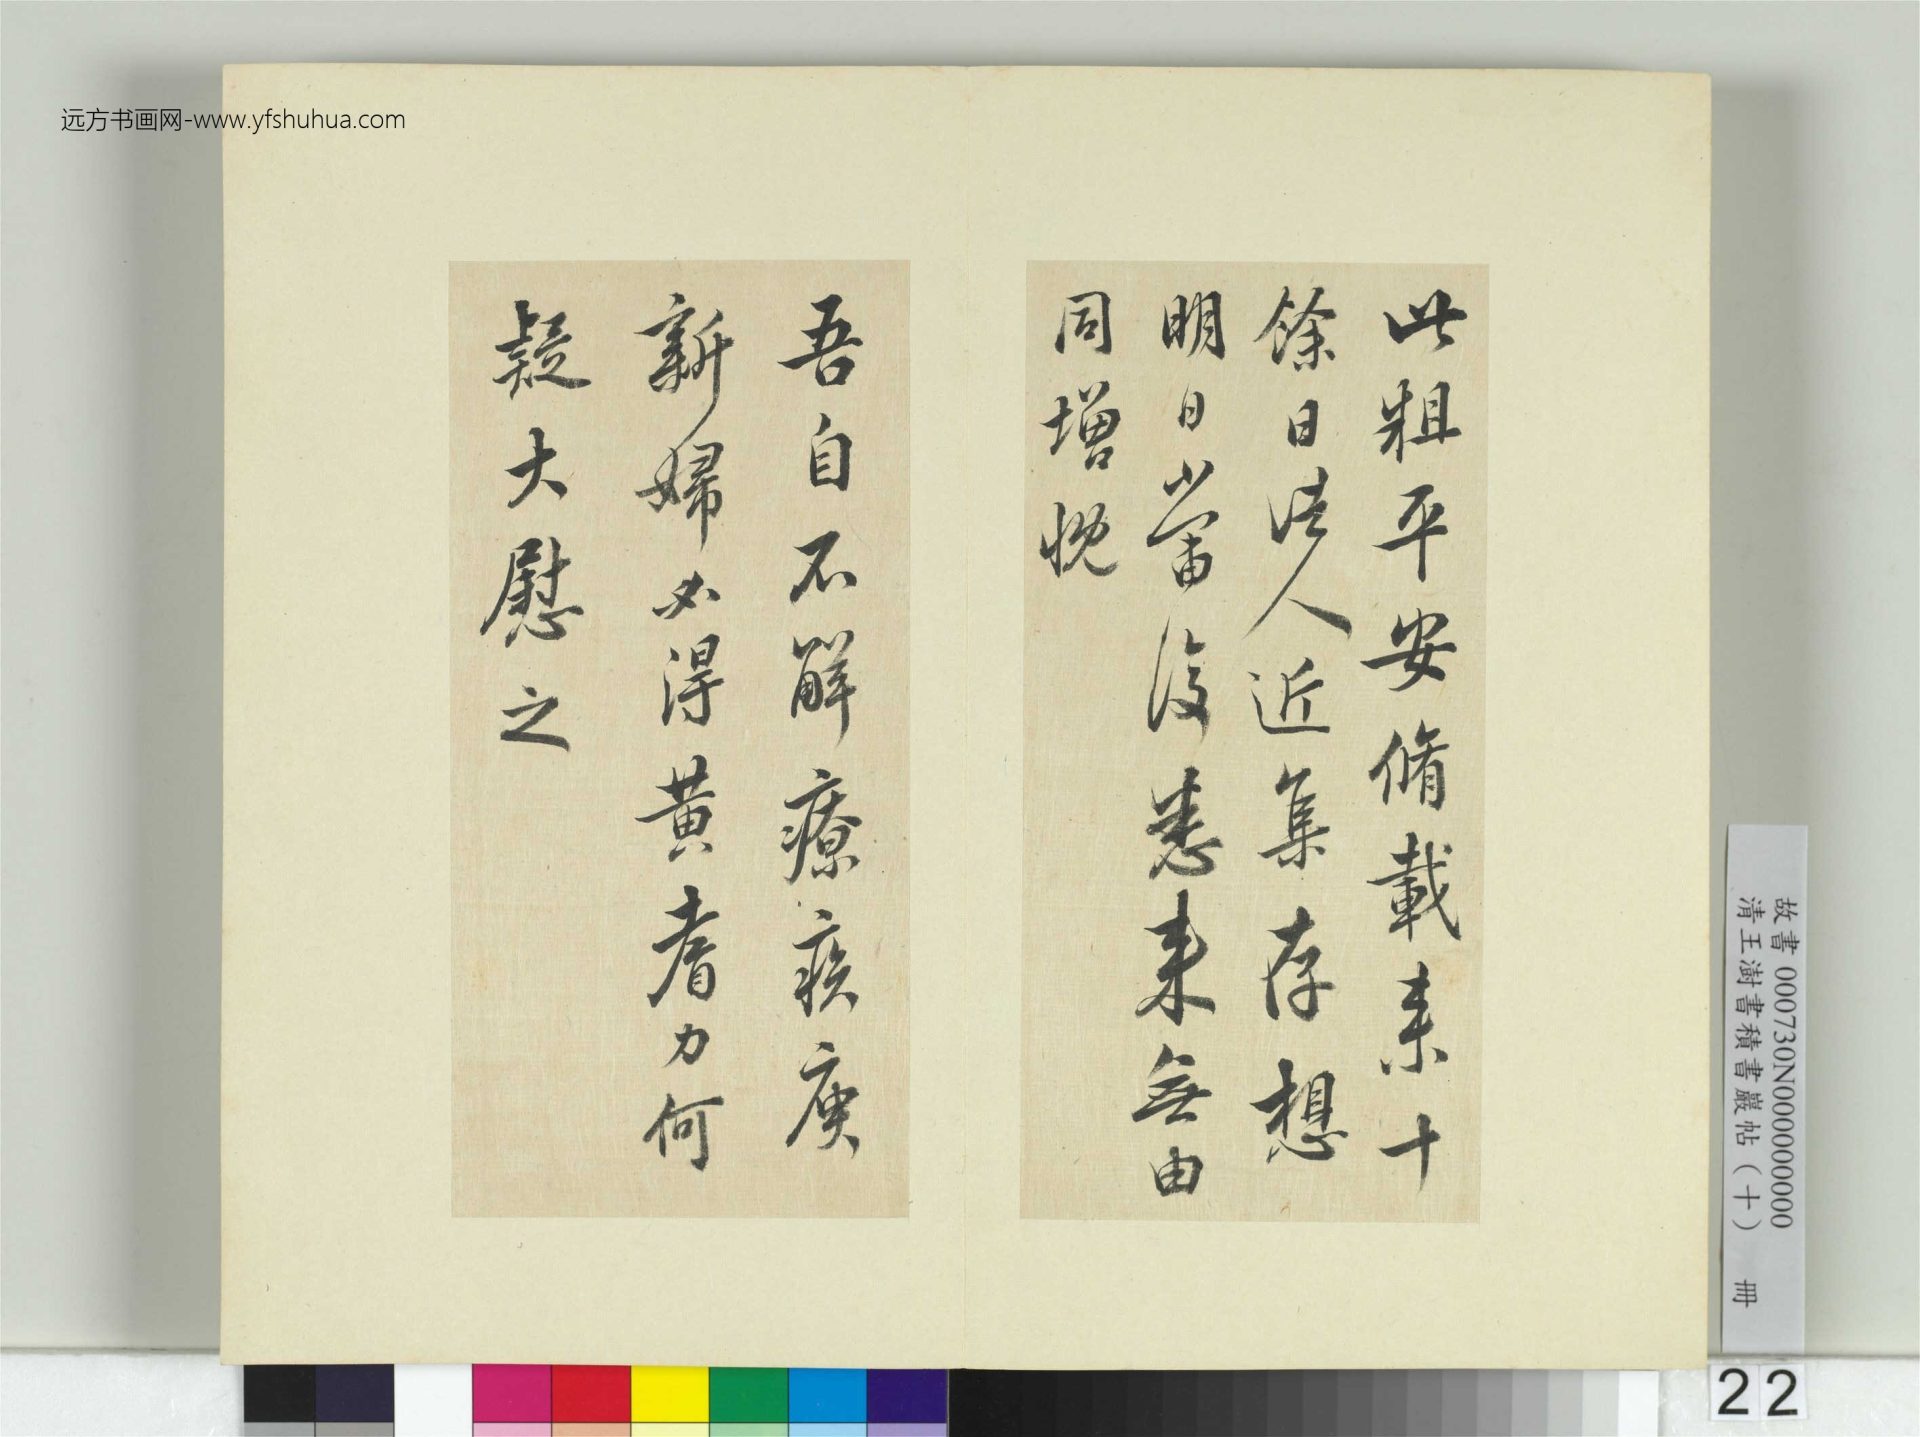 远方书画网-www.yfshuhua.com
此粗平安脩載来十
餘日諸人近集存想
明日當復悉来無由
同增慨
吾自不解療疾庾
新婦必得黃耆力何
疑大慰之
故書 000730N000000000
清王澍書積書巖帖（十） 冊
22